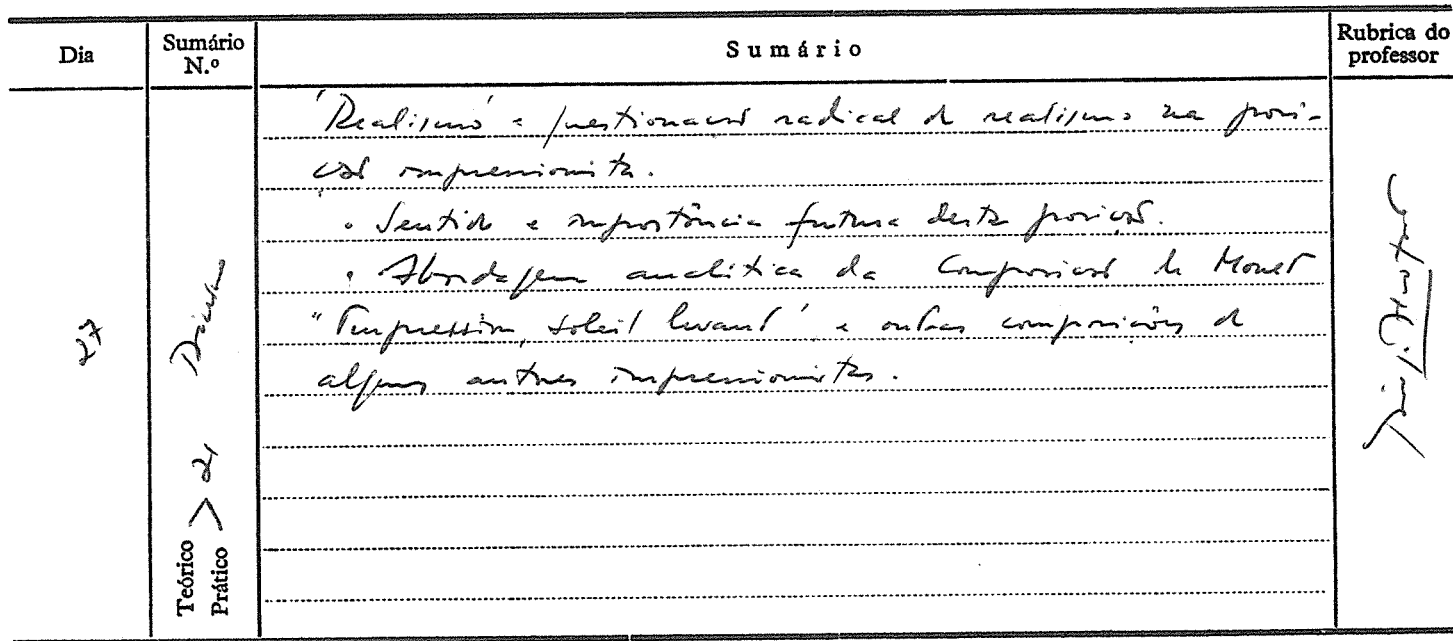 Dia
Sumário N.º
Sumário
Rubrica do professor
'Realismo' e questionação radical do realismo na posi-
ção impressionista.
• Sentido e importância futura desta posição.
• Abordagem analítica da Composição de Monet
"Impression, soleil levant" e outras composições de
alguns autores impressionistas.
27
Teórico
Prático > 21